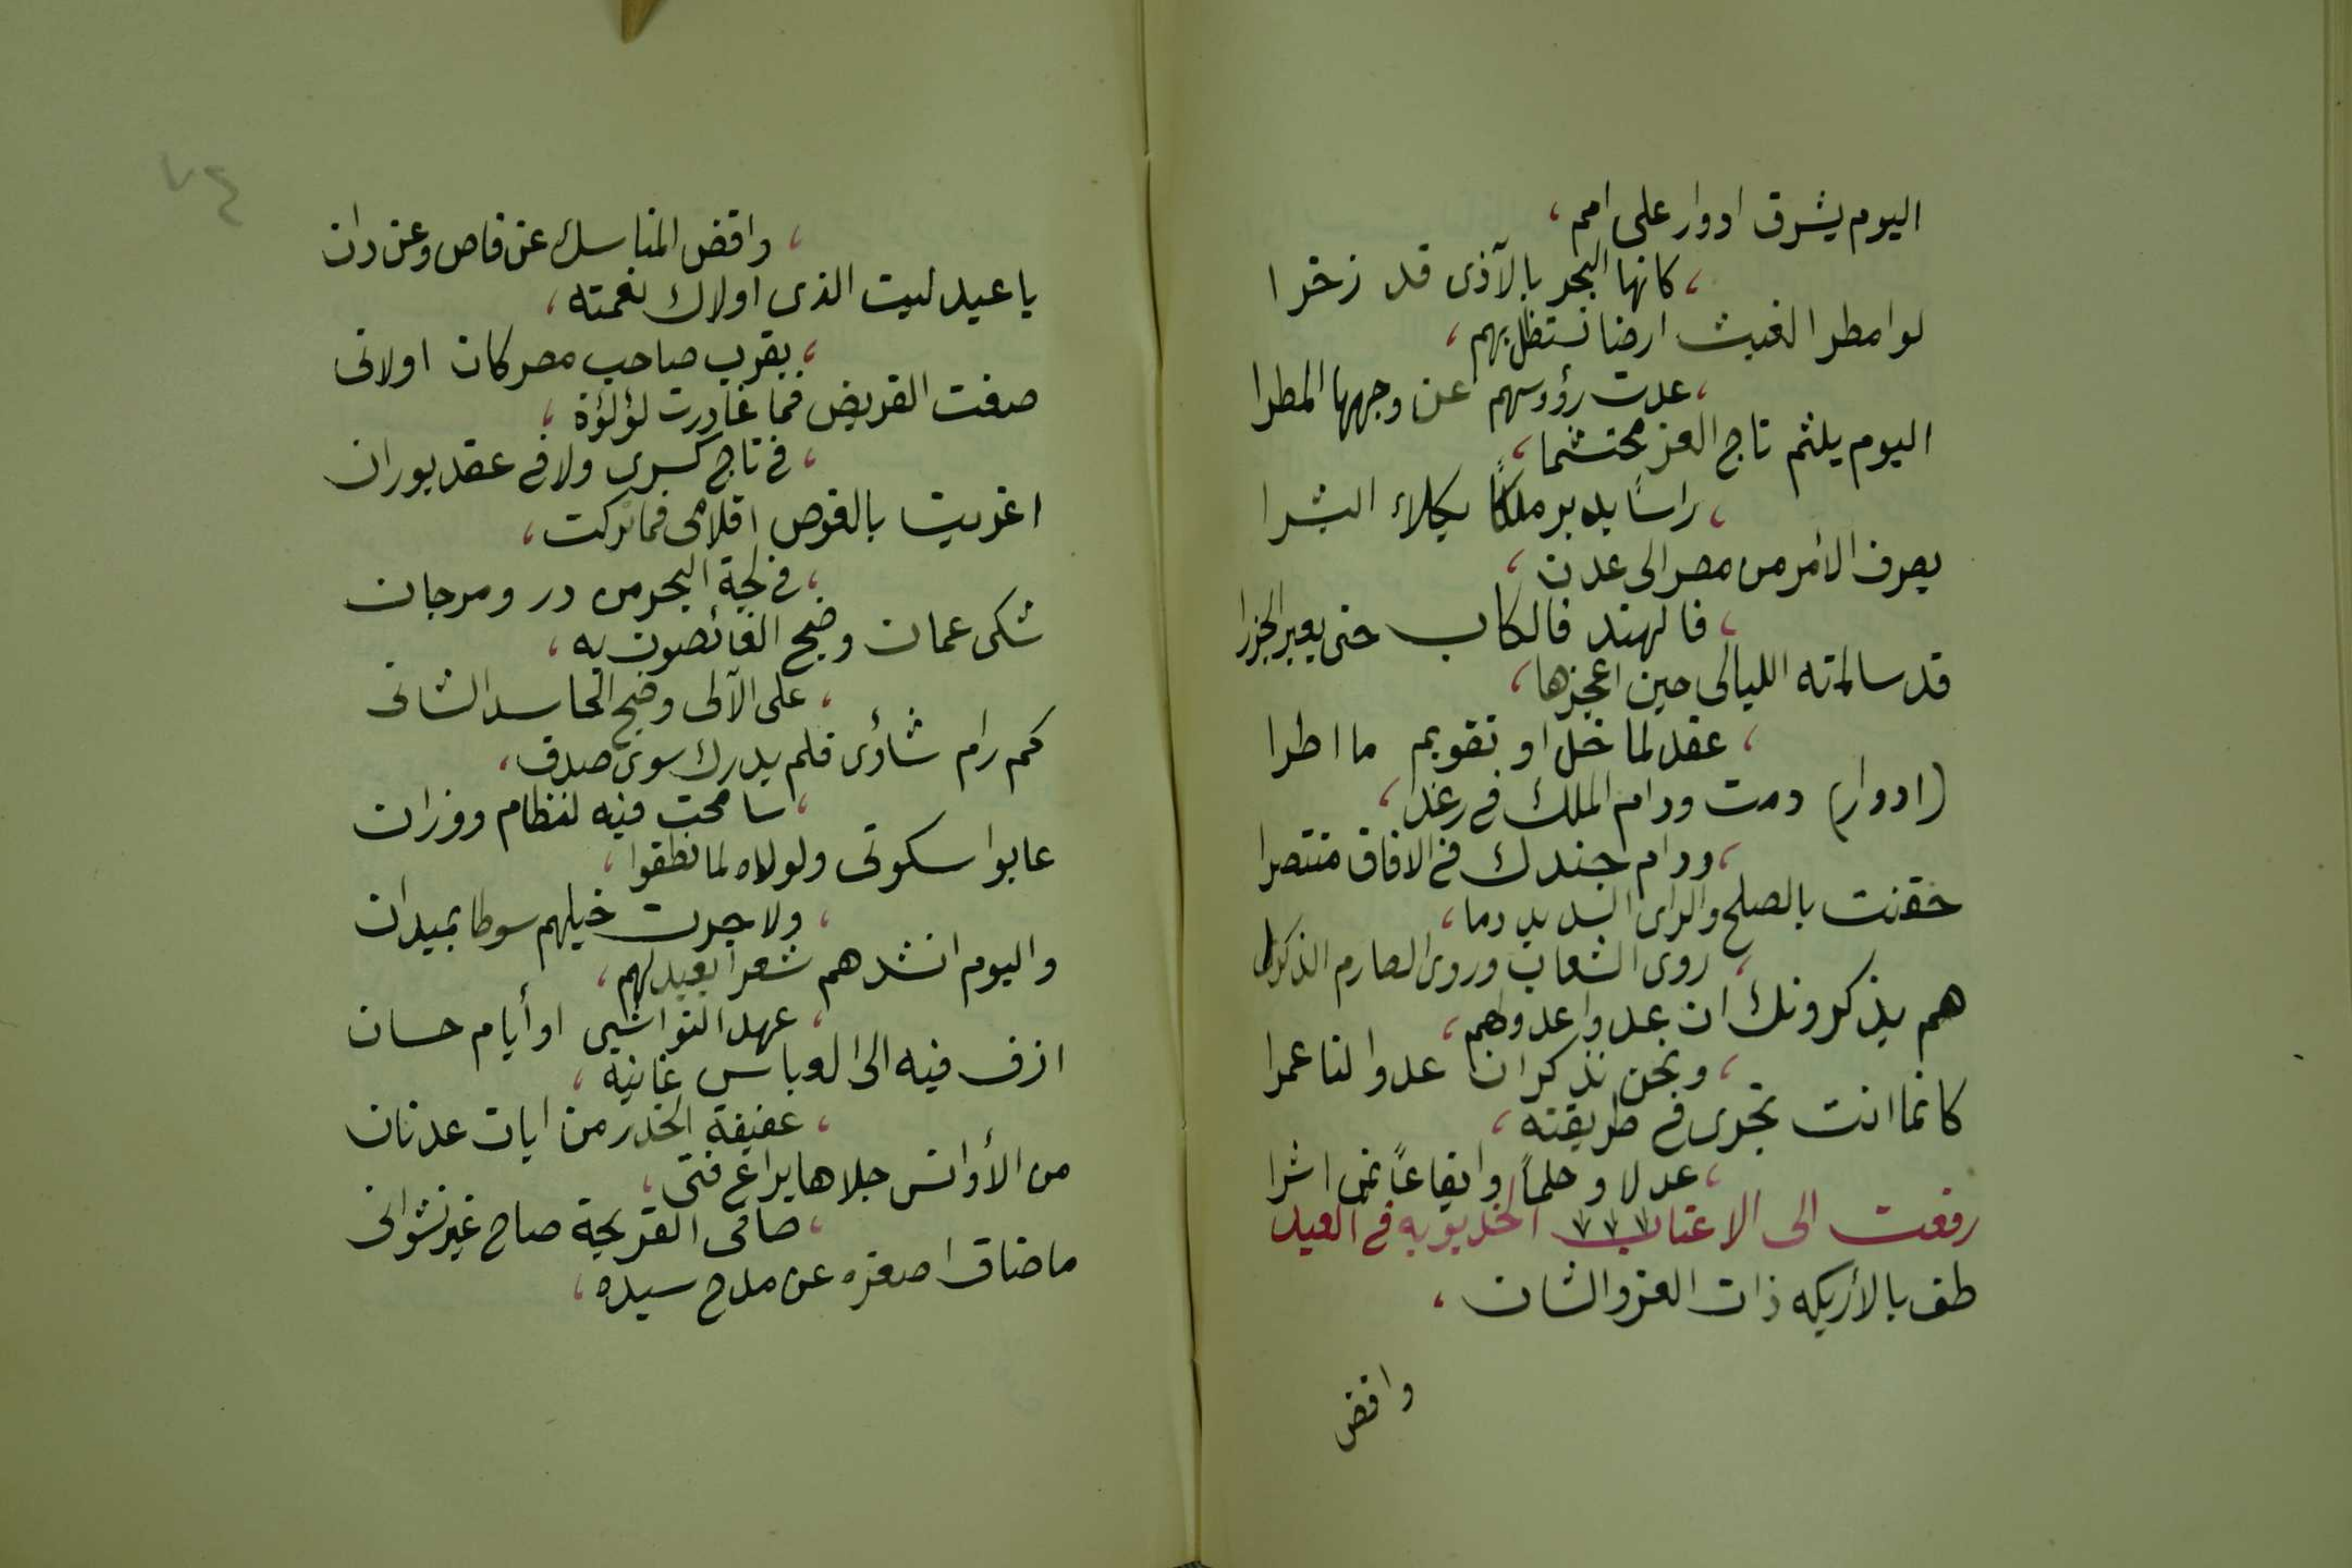 اليوم يشرق ادوار على امم ،
، كانها البحر بالآذى قد زخرا
لوامطر الغيث ارضا تستظل بهم ،
، عدت رؤوسهم عن وجهها المطرا
اليوم يلثم تاج العز محتشما ،
، راسًا يدبر ملكًا يكلاء البشرا
يصرف الأمر من مصر الى عدن ،
، فالهند فالكاب حتى يعبر الجزرا
قد سالمته الليالى حين اعجزها ،
، عقد لما خل او تقويم ما اطرا
(ادوار) دمت ودام الملك فى رغد ،
، ودام جندك فى الافاق منتصرا
حقنت بالصلح والراى السديد دما ،
، روى الشعاب وروى الصارم الذكرا
هم يذكرونك ان عدوا عدولهم ،
، ونحن نذكر ان عدوا لنا عمرا
كانما انت تجرى فى طريقته ،
، عدلا وحلماً وايقاعاً بمن اشرا
رفعت الى الاعتاب الخديويه فى العيد
طف بالأريكه ذات العز والشان ،
واقض
٧٤
، واقض المناسك عن قاص وعن دان
يا عيد ليت الذى اولاك نعمته ،
، بقرب صاحب مصر كان اولانى
صغت القريض فما غادرت لؤلؤة ،
، فى تاج كسرى ولا فى عقد بوران
اغريت بالغوص اقلامى فما تركت ،
، فى لجة البحر من در ومرجان
شكى عمان وضج الغائصون به ،
، على الآلى وضج الحاسد الشانى
كم رام شاؤى فلم يدرك سوى صدف ،
، سامحت فيه لنظام ووزان
عابوا سكوتى ولولاه لما نطقوا ،
، ولا جرت خيلهم سوطا بميدان
واليوم انشدهم شعرا يعيد لهم ،
، عهد النواشى او أيام حسان
ازف فيه الى العباس غانيه ،
، عفيفة الخدر من ايات عدنان
من الأوانس جلاها يراع فتى ،
، صافى القريحة صاح غير نشوان
ماضاق اصغره عن مدح سيده ،